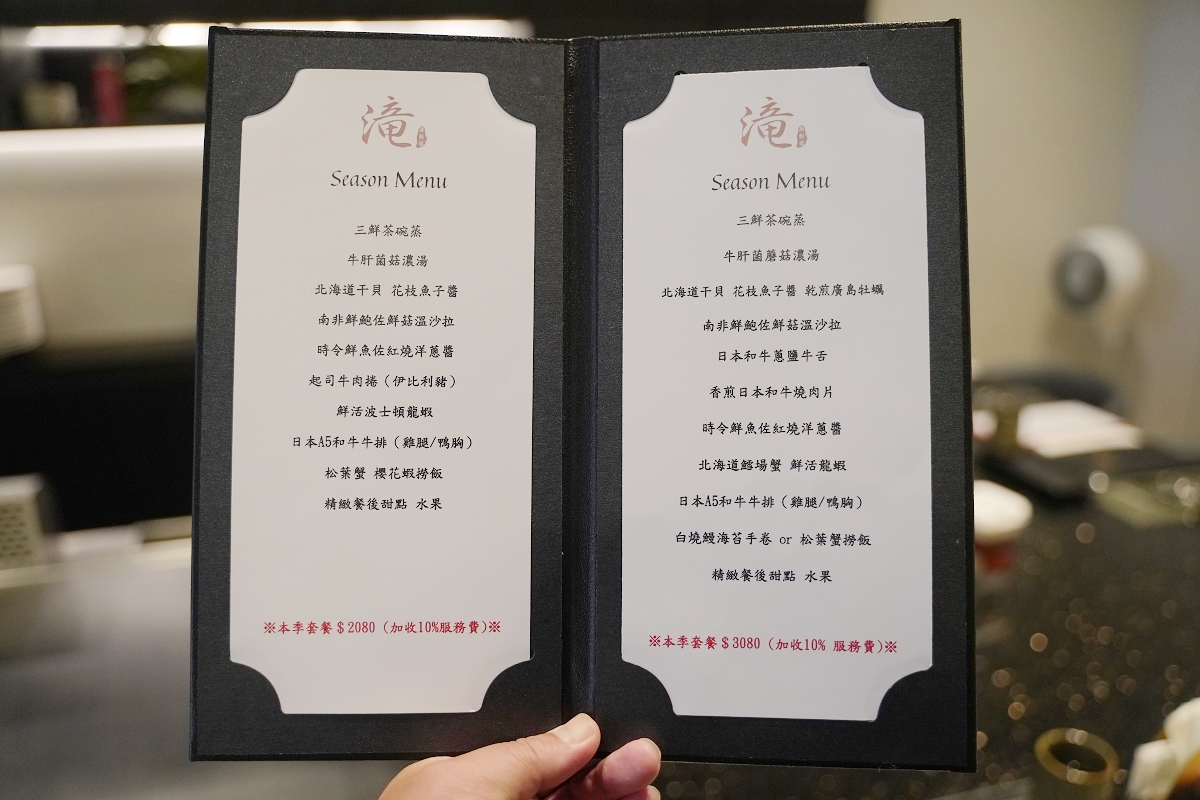 滝
Season Menu
三鮮茶碗蒸
牛肝菌菇濃湯
北海道干貝 花枝魚子醬
南非鮮鮑佐鮮菇溫沙拉
時令鮮魚佐紅燒洋蔥醬
起司牛肉捲（伊比利豬）
鮮活波士頓龍蝦
日本A5和牛牛排（雞腿/鴨胸）
松葉蟹 櫻花蝦撈飯
精緻餐後甜點 水果
※本季套餐＄2080（加收10%服務費）※
滝
Season Menu
三鮮茶碗蒸
牛肝菌蘑菇濃湯
北海道干貝 花枝魚子醬 乾煎廣島牡蠣
南非鮮鮑佐鮮菇溫沙拉
日本和牛蔥鹽牛舌
香煎日本和牛燒肉片
時令鮮魚佐紅燒洋蔥醬
北海道鱈場蟹 鮮活龍蝦
日本A5和牛牛排（雞腿/鴨胸）
白燒鰻海苔手卷 or 松葉蟹撈飯
精緻餐後甜點 水果
※本季套餐＄3080（加收10% 服務費）※